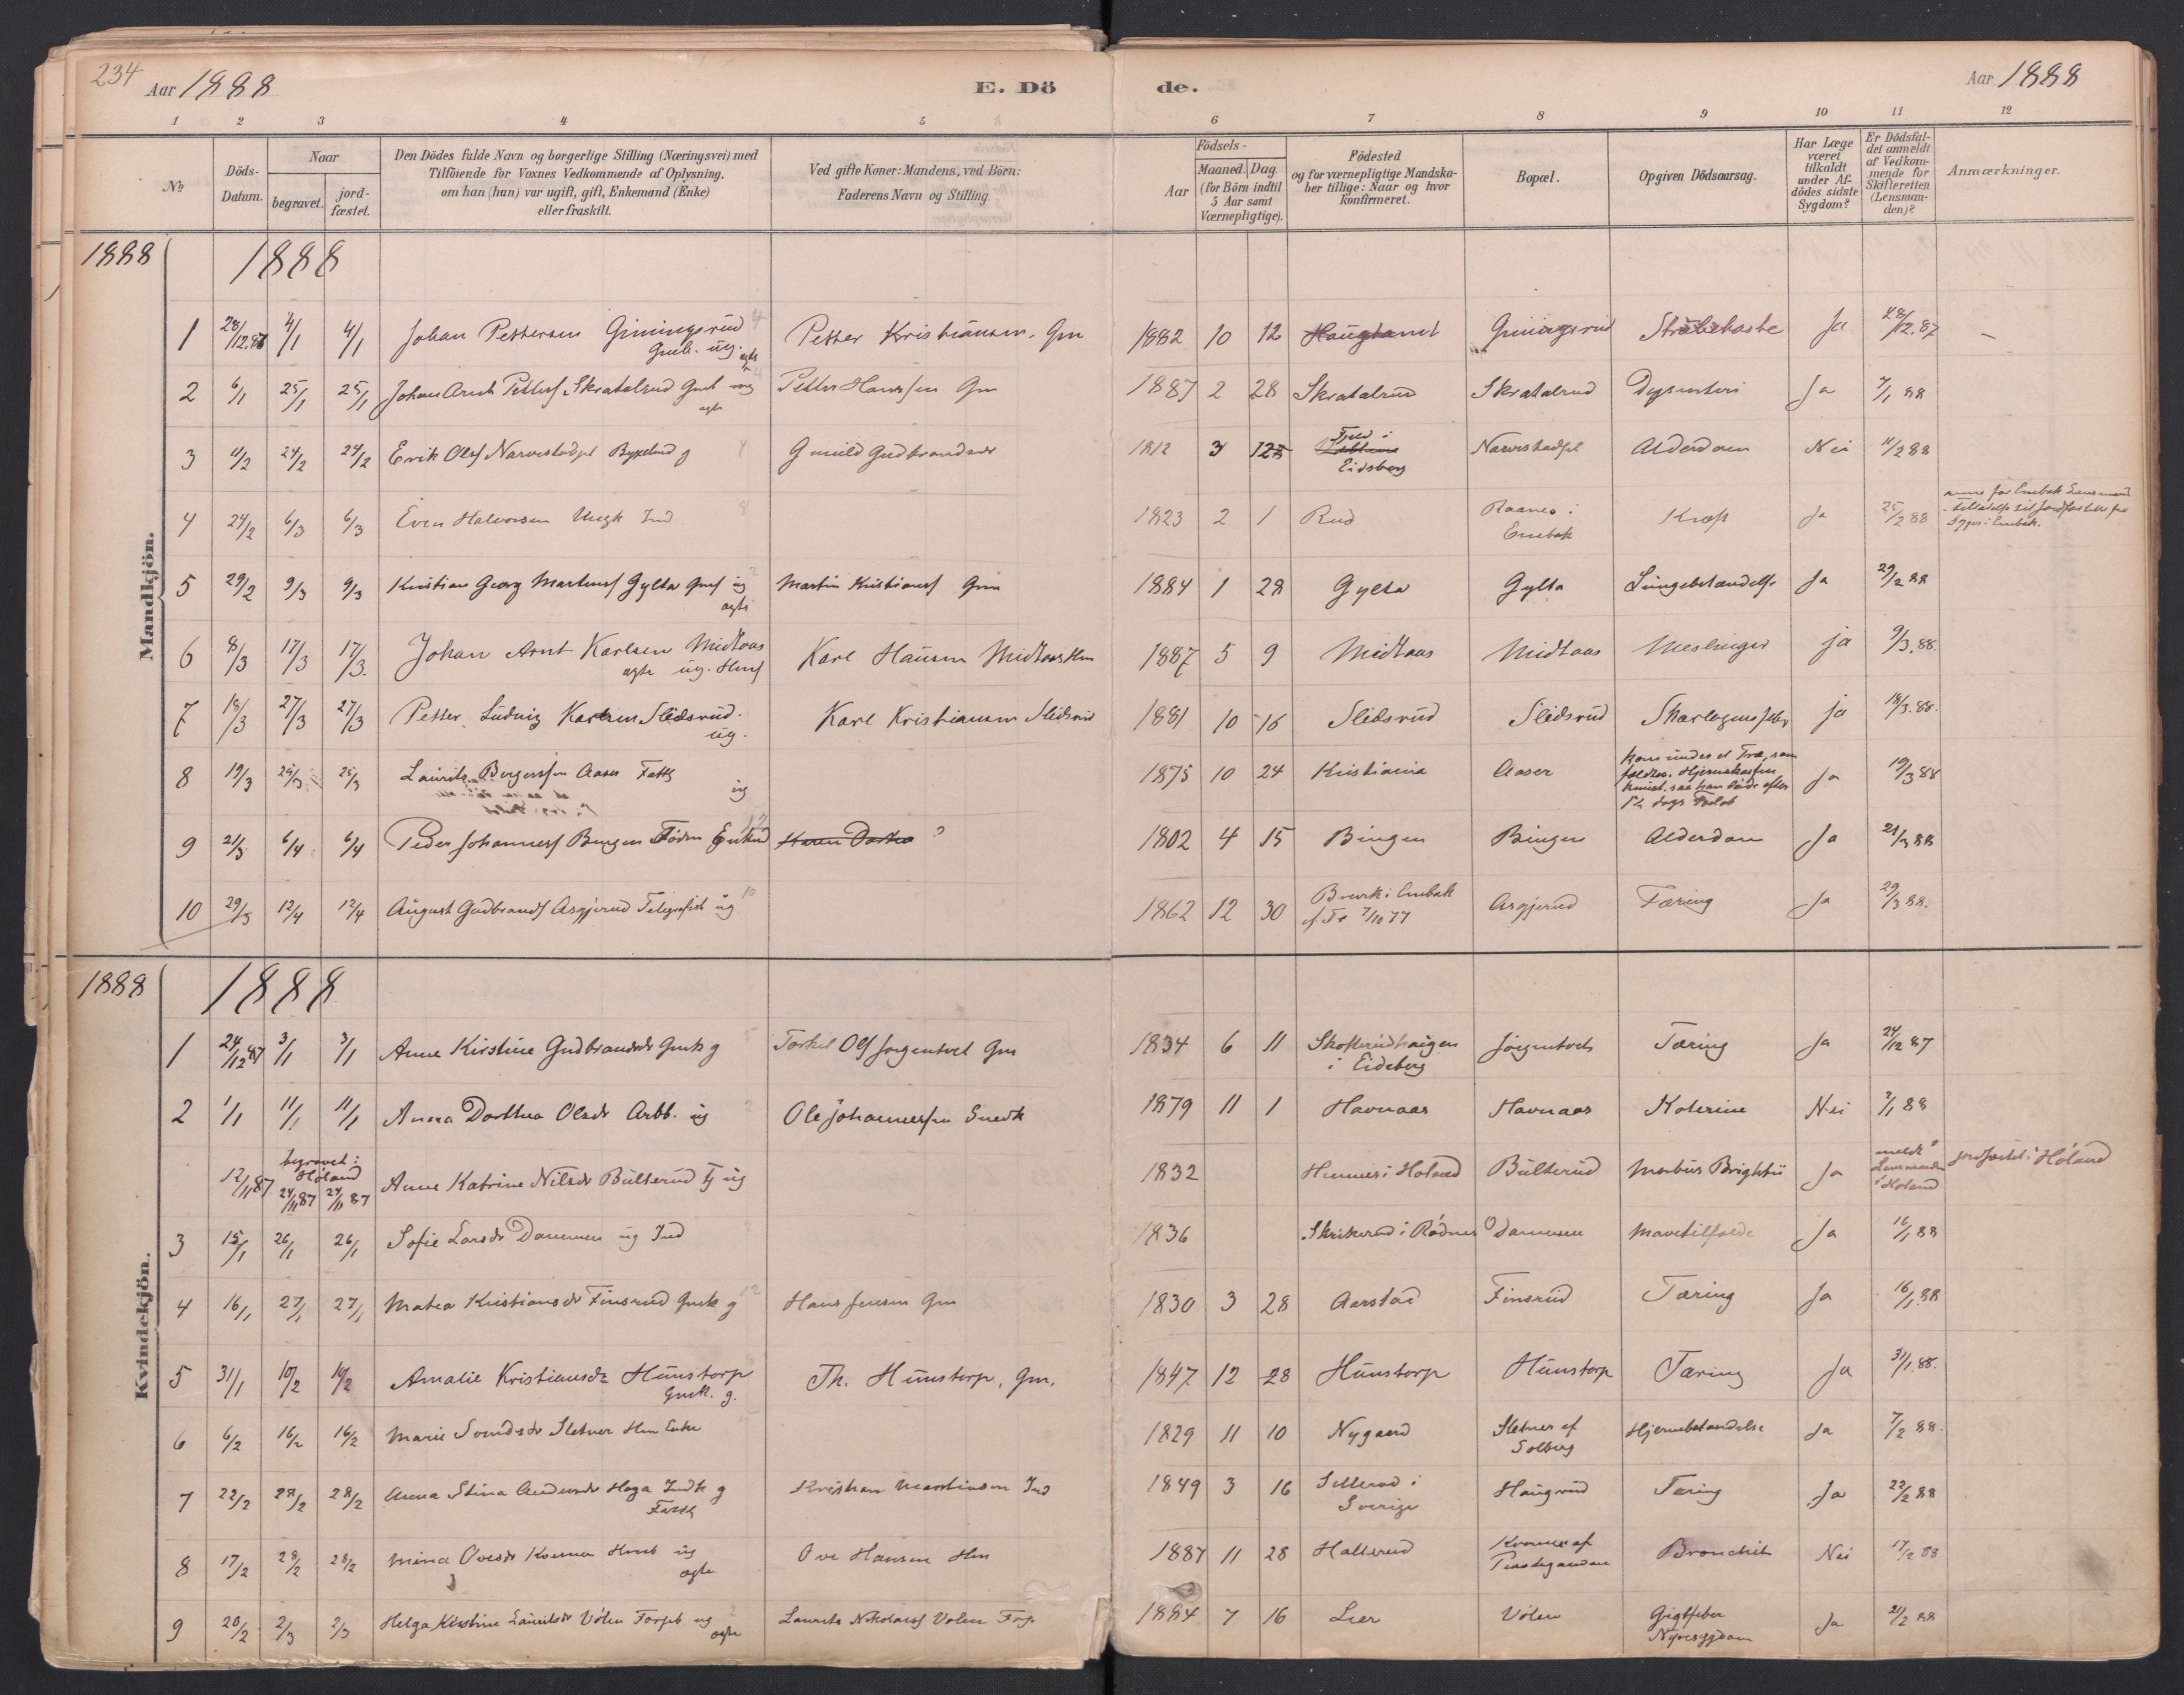 234
Aar 1888
E. Dö
de.
Aar 1888
1 2 3 4 5 6 7 8 9 10 11 12
№
Döds-Datum.
Naar
begravet.
jord-fæstet.
Den Dödes fulde Navn og borgerlige Stilling (Næringsvei) med
Tilföiende for Voxnes Vedkommende af Oplysning,
om han (hun) var ugift, gift, Enkemand (Enke)
eller fraskilt.
Ved gifte Koner: Mandens, ved Börn:
Faderens Navn og Stilling.
Födsels-
Aar
Maaned. Dag.
(for Börn indtil
5 Aar samt
Værnepligtige).
Födested
og for værnepligtige Mandska-
ber tillige: Naar og hvor
konfirmeret.
Bopæl.
Opgiven Dödsaarsag.
Har Læge
været
tilkaldt
under Af-
dödes sidste
Sygdom?
Er Dödsfal-
det anmeldt
af Vedkom-
mende for
Skifteretten
(Lensman-
den)?
Anmærkninger.
1888 1888
Mandkjön.
1 28/12.87 4/1 4/1 Johan Pettersen Giningsrud Petter Kristiansen, Gm 1882 10 12 Haugtomt Giningsrud Strubehoste Ja 28/12.87 —
ug. ægte
2 6/1 25/1 25/1 Johan Arnt Petters Skratalrud ug Petter Hanssen Gm 1887 2 28 Skratalrud Skratalrud Dysenteri Ja 7/1 88
ægte
3 11/2 24/2 24/2 Erik Ols Narvestadpl g Gunild Gudbrandsdr 1812 3 12 Fjeld i Eidsberg Narvestadpl Alderdom Nei 11/2 88
4 24/2 6/3 6/3 Even Halvorsen Ungk Ind 1823 2 1 Rud Raanes i Enebak Kræft Ja 25/2 88
5 29/2 9/3 9/3 Kristian Georg Martins Gylta ug Martin Kristians Gm 1884 1 28 Gylta Gylta Lungebetændelse Ja 29/2 88
ægte
6 8/3 17/3 17/3. Johan Arnt Karlsen Midtaas Karl Hansen Midtaas Hm 1887 5 9 Midtaas Midtaas Meslinger ja 9/3.88.
ægte ug.
7 18/3 27/3 27/3 Petter Ludvig Karlsen Slidsrud. Karl Kristiansen Slidsrud 1881 10 16 Slidsrud Slidsrud Skarlagensfeber ja 18/3.88.
ug.
8 19/3 25/3 25/3 Laurits Bergersen Aaser Fattg 1875 10 24 Kristiania Aaser kom under et Træ, som
ug
faldtes. Hjerneskallen
knust, saa han døde efter
1½ dags Forløb Ja 19/3 88
9 21/3 6/4 6/4 Peder Johannes Bingen Enkm Karen Dorthea ? 1802 4 15 Bingen Bingen Alderdom Ja 21/3 88
10 29/3 12/4 12/4 August Gudbrands Asgjerud Telegrafist ug 1862 12 30 i Enebak 7/10 77 Asgjerud Tæring Ja 29/3 88.
1888 1888
Kvindekjön.
1 24/12 87 3/1 3/1 Anne Kirstine Gudbrandsdr Gmk g Torkel Ols Jørgentvet Gm 1834 6 11 Skofterudhaugen
i Eidsberg Jørgentvet Tæring Ja 24/12 87
2 1/1 11/1 11/1 Anna Dorthea Olsdr Arbb. ug Ole Johannessen Snedk 1879 11 1 Havnaas Havnaas Kolerine Nei 2/1 88
12/11 87 begravet i
Høland
24/11 87 24/11 87 Anne Katrine Nilsdr Bulterud Tj ug 1832 Hemnes i Høland Bulterud Morbus Brightii Ja meldt
Lensmanden
i Høland jordfæstet i Høland
3 15/1 26/1 26/1 Sofie Larsdr Dammen ug Ind 1836 Skrikerud i Rødnes Dammen Mavetilfælde Ja 16/1 88
4 16/1 27/1 27/1 Matea Kristiansdr Finsrud Gmk g Hans Jensen Gm 1830 3 28 Aarstad Finsrud Tæring Ja 16/1.88
5 31/1 10/2 10/2 Amalie Kristiansdr Hunstorp Th. Hunstorp, Gm. 1847 12 28 Hunstorp Hunstorp Tæring Ja 31/1.88.
Gmk. g.
6 6/2 16/2 16/2 Marie Svendsdr Sletner Hm Enke 1829 11 10 Nygaard Sletner af
Solberg Hjernebetændelse Ja 7/2 88.
7 22/2 28/2 28/2 Anna Stina Andersdr Haga Indk g Kristian Martinsen Ind 1849 3 16 Sillerud i
Fattg
Sverige Haugrud Tæring Ja 22/2 88
8 17/2 28/2 28/2 Mina Ovesdr ug Ove Hansen Hm 1887 11 28 Hallerud af
ægte
Præstegaarden Bronchit Nei 17/2 88
9 20/2 2/3 2/3 Helga Kirstine Lauritsdr Vølen ug Laurits Nikolais Volen 1884 7 16 Lier Vølen Gigtfeber
ægte
Nyresygdom Ja 21/2 88